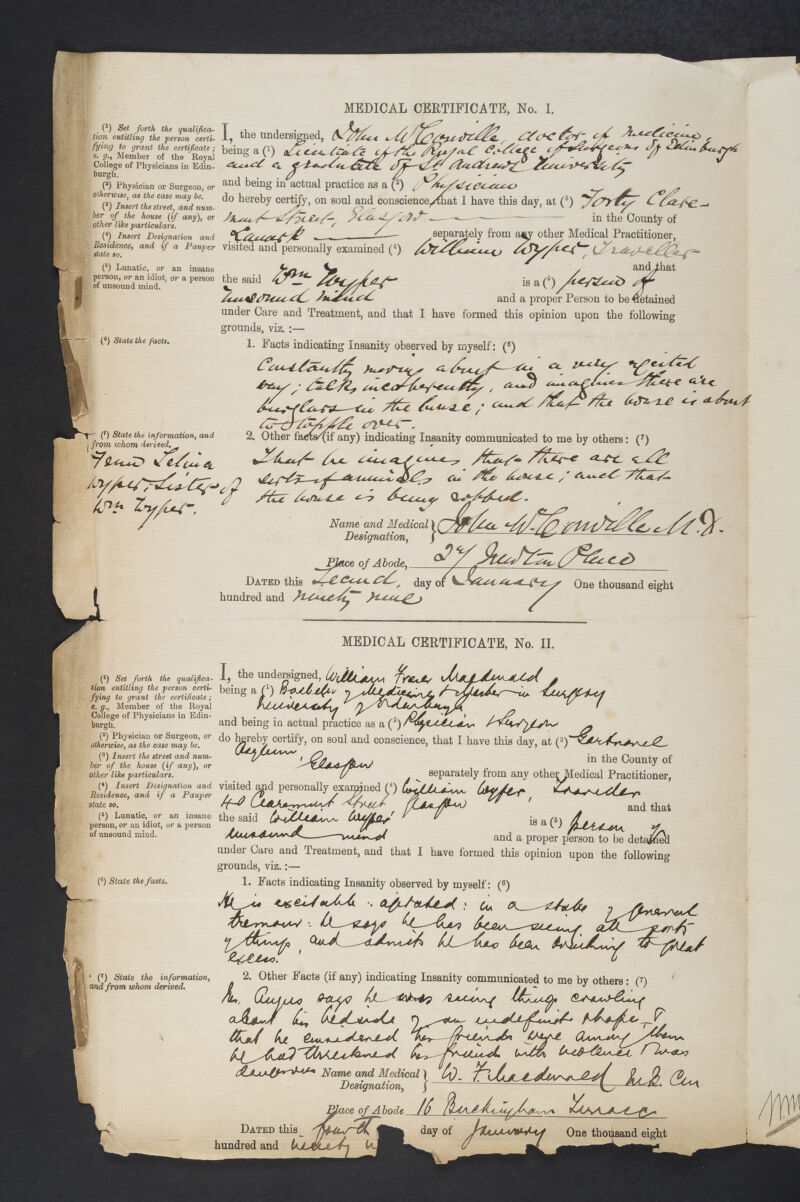 MEDICAL CERTIFICATE, No. I.
(1) Set forth the qualifica-
tion entitling the person certi-
fying to grant the certificate;
e. g., Member of the Royal
College of Physicians in Edin-
burgh.
(2) Physician or Surgeon, or
otherwise, as the case may be.
(3) Insert the street, and num-
ber of the house (if any), or
other like particulars.
(4) Insert Designation and
Residence, and if a Pauper
state so.
(5) Lunatic, or an insane
person, or an idiot, or a person
of unsound mind.
I, the undersigned, John McConville, doctor of medicine,
being a (1) Licentiate of the Royal College of Surgeons of Edinburgh
and a graduate of St Andrews University
and being in actual practice as a (2) Physician
do hereby certify, on soul and conscience, that I have this day, at (3) Forty Clare-
mont Street, Glasgow in the County of
Lanark separately from any other Medical Practitioner,
visited and personally examined (4) William Wyper, Traveller
and that
the said Wm Wyper is a (5) person of
unsound mind and a proper Person to be detained
under Care and Treatment, and that I have formed this opinion upon the following
grounds, viz. :—
(6) State the facts.
1. Facts indicating Insanity observed by myself: (6)
Constantly moving about in a very excited
way; talks incoherently, and imagines there are
burglars in the house; and that the house is about
to topple over.
(7) State the information, and
from whom derived.
2. Other facts (if any) indicating Insanity communicated to me by others: (7)
Selina
Wyper, Sister of
Wm Wyper.
That he imagines that there are all
sorts of animals in the house; and that
the house is being robbed.
Name and Medical Designation, John McConville M.D.
Place of Abode, 27 Newton Place
DATED this Second, day of January One thousand eight
hundred and ninety nine
MEDICAL CERTIFICATE, No. II.
(1) Set forth the qualifica-
tion entitling the person certi-
fying to grant the certificate;
e. g., Member of the Royal
College of Physicians in Edin-
burgh.
(2) Physician or Surgeon, or
otherwise, as the case may be.
(3) Insert the street and num-
ber of the house (if any), or
other like particulars.
(4) Insert Designation and
Residence, and if a Pauper
state so.
(5) Lunatic, or an insane
person, or an idiot, or a person
of unsound mind.
I, the undersigned, William Fraser Macdonald
being a (1) Bachelor of Medicine & Master in Surgery
University of Edinburgh
and being in actual practice as a (2) Physician & Surgeon
do hereby certify, on soul and conscience, that I have this day, at (3) Gartnavel
Asylum, Glasgow in the County of
separately from any other Medical Practitioner,
visited and personally examined (4) William Wyper, Traveller
40 Claremont Street, Glasgow and that
the said William Wyper is a (5) person of
unsound mind and a proper person to be detained
under Care and Treatment, and that I have formed this opinion upon the following
grounds, viz. :—
(6) State the facts.
1. Facts indicating Insanity observed by myself: (6)
He is excitable : agitated : in a state of general
tremour : he says he has been seeing all sorts
of things, and admits he has been drinking to great
excess.
(7) State the information,
and from whom derived.
2. Other Facts (if any) indicating Insanity communicated to me by others: (7)
Mr. Angus says he was seeing things crawling
about his bedside of an indefinite shape, &
that he considered his friends were among them
he had threatened his friends with violence & was
dangerous
Name and Medical Designation, W. F. Macdonald M.B. Cm
Place of Abode 16 Buckingham Terrace
DATED this fourth day of January One thousand eight
hundred and ninety n